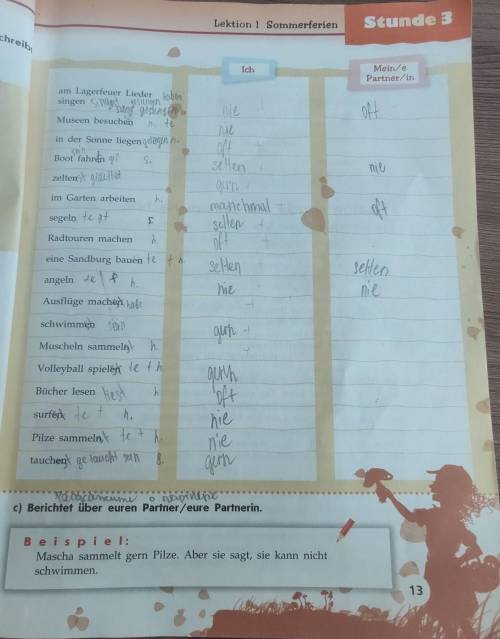 Lektion 1 Sommerferien Stunde 3
Ich Mein/e
Partner/in
am Lagerfeuer Lieder haben
singen gesungen nie oft
Museen besuchen h. te nie
in der Sonne liegen gelegen h. oft
Boot fahren s. selten nie
zelten gern
im Garten arbeiten h. manchmal oft
segeln te s. selten
Radtouren machen h. oft
eine Sandburg bauen te + h. selten selten
angeln te h. nie nie
Ausflüge machen
schwimmen sein gern
Muscheln sammeln h.
Volleyball spielen te + h. gern
Bücher lesen liest h. oft
surfen te + h. nie
Pilze sammeln te + h. nie
tauchen getaucht s. gern
c) Berichtet über euren Partner/eure Partnerin.
Beispiel:
Mascha sammelt gern Pilze. Aber sie sagt, sie kann nicht
schwimmen.
13